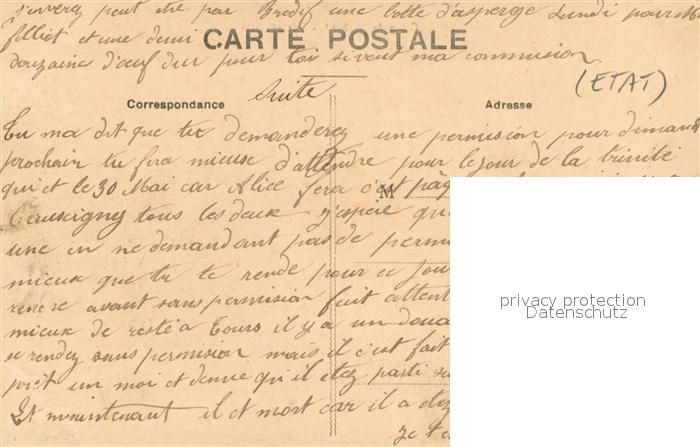 j'enverez peut etre par Bredif une botte d'asperge Lundi pour Mr
filliot et une demi
CARTE POSTALE
douzaine d'oeuf dur pour toi sivent ma commision
(ETAT)
suite
Correspondance
Adresse
Tu ma dit que tu demanderez une permision pour dimanch
prochain tu fera mieuse d'attendre pour le jour de la trinité
qui et le 30 Mai car Alice fera c'est pâq
M
tous les deux j'espère que
une en ne demandant pas de permi
mieux que tu te rende pour ce jou
avant sans permision fait attent
mieux de resté a Tours il y a un doua
se rendez sans permision mais il c'est fait
pret un moi et demie qu'il etez parti
Et maintenant il et mort car il a
Je t
privacy protection
Datenschutz